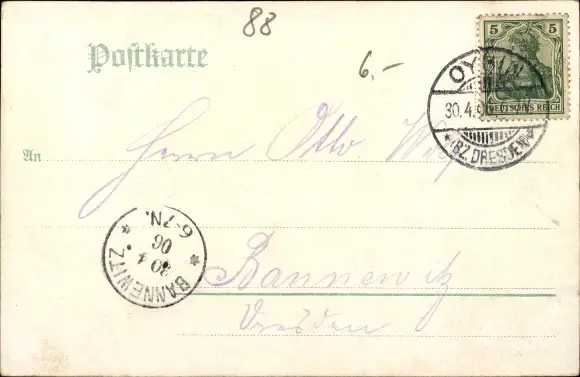 88
Postkarte
6.-
5
DEUTSCHES REICH
30.4.
*(BZ. DRESDEN)*
An
Herrn Otto
6-7N.
30 4
06
* BANNEWITZ *
Bannewitz
Dresden